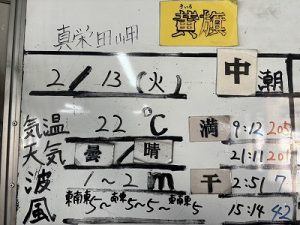 真栄田岬
きいろ
黄旗
2/13(火) 中潮
気温 22℃ 満 9:12 205
天気 曇/晴 21:11 201
波 1~2m 干 2:51 7
風 東南東5~南東5~5~東南東5 15:14 42